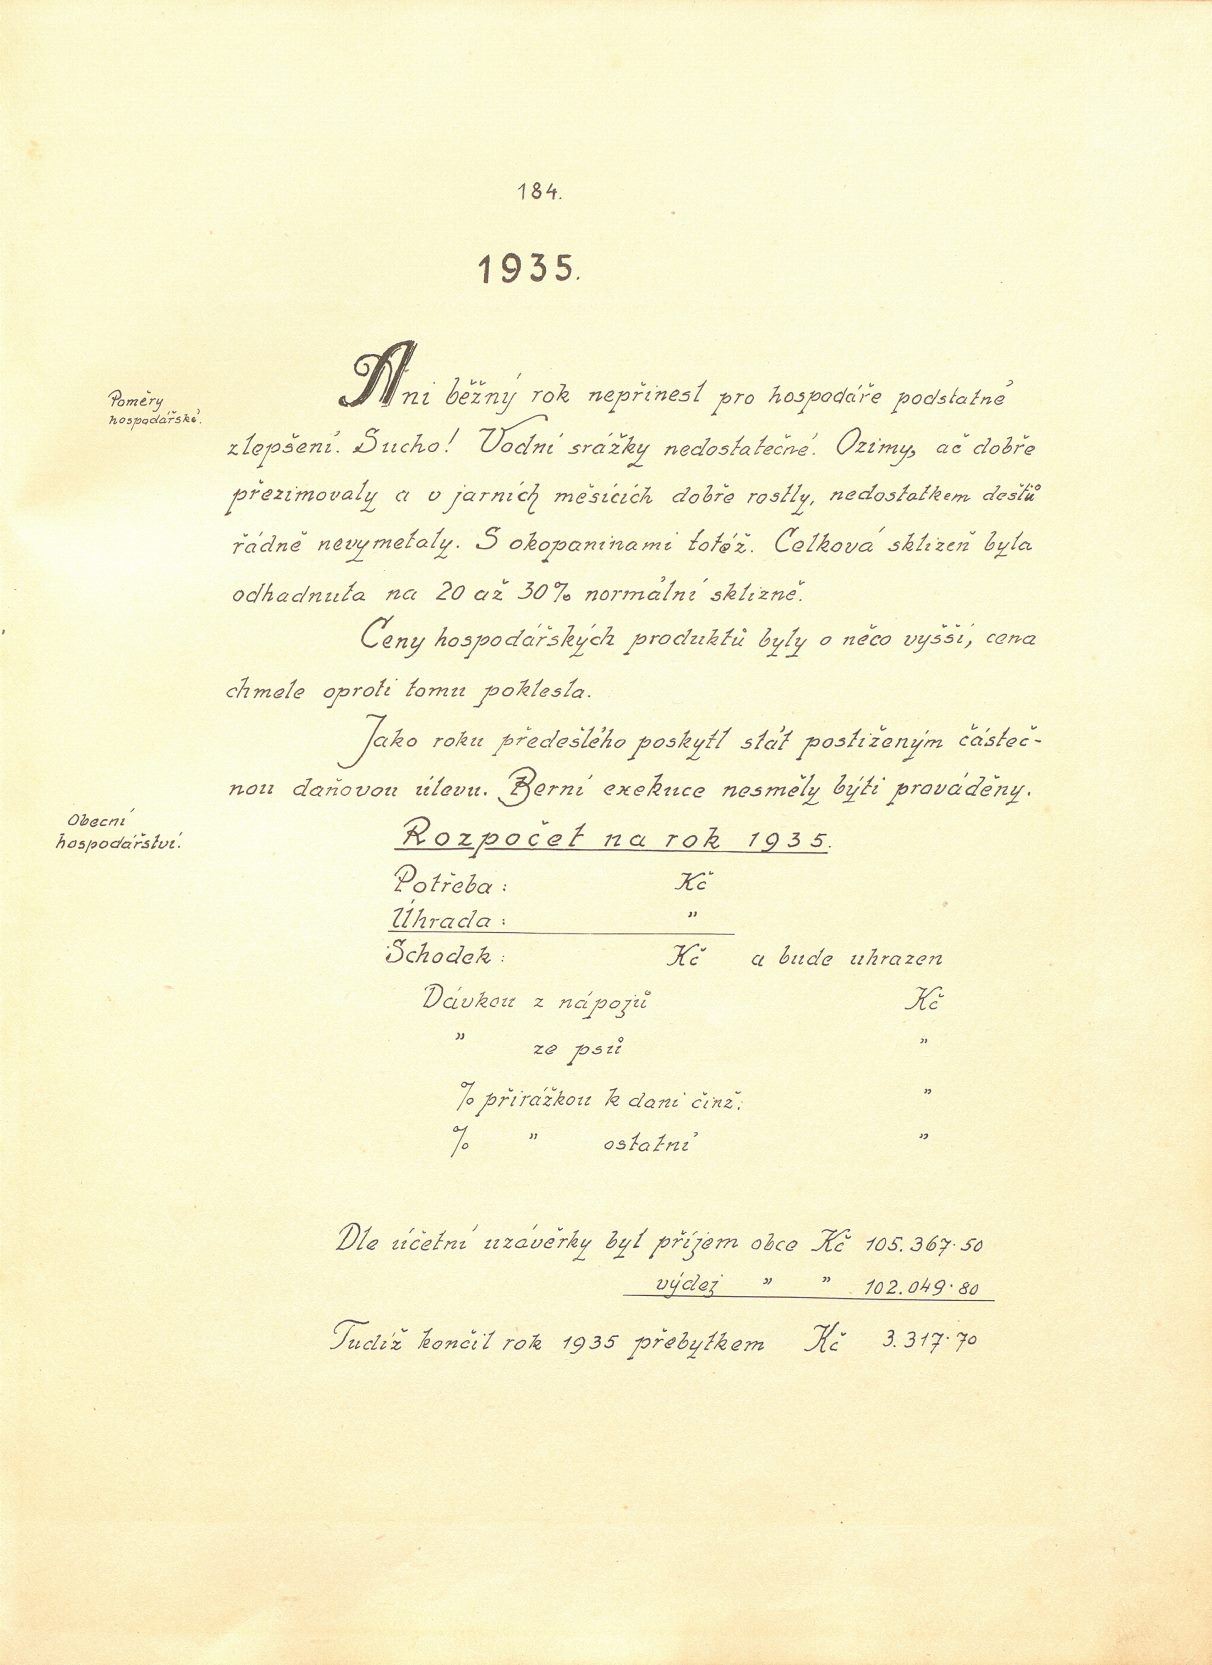 184.
1935.
Poměry
hospodářské.
Ani běžný rok nepřinesl pro hospodáře podstatné
zlepšení. Sucho! Vodní srážky nedostatečné. Ozimy, ač dobře
přezimovaly a v jarních měsících dobře rostly, nedostatkem dešťů
řádně nevymetaly. S okopaninami totéž. Celková sklizeň byla
odhadnuta na 20 až 30% normální sklizně.
Ceny hospodářských produktů byly o něco vyšší, cena
chmele oproti tomu poklesla.
Jako roku předešlého poskytl stát postiženým částeč-
nou daňovou úlevu. Berní exekuce nesměly býti prováděny.
Obecní
hospodářství.
Rozpočet na rok 1935.
Potřeba: Kč
Úhrada: "
Schodek: Kč a bude uhrazen
Dávkou z nápojů Kč
" ze psů "
% přirážkou k dani činž. "
% " ostatní "
Dle účetní uzávěrky byl příjem obce Kč 105.367.50
výdej " " 102.049.80
Tudíž končil rok 1935 přebytkem Kč 3.317.70